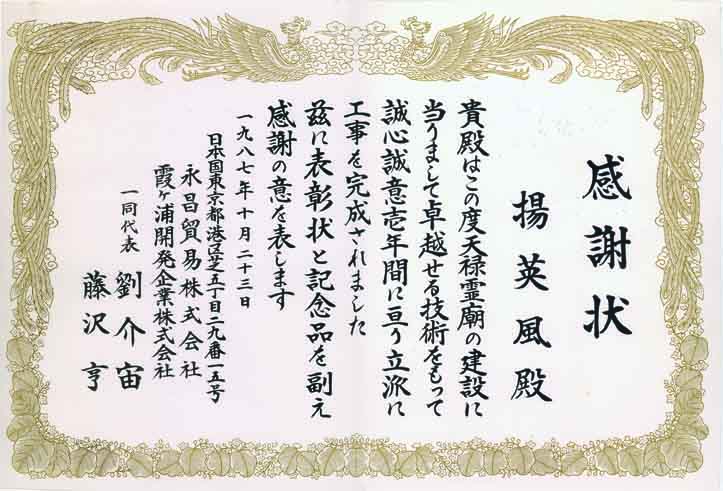 感謝状
揚英風殿
貴殿はこの度天禄霊廟の建設に
当りまして卓越せる技術をもって
誠心誠意壱年間に亘り立派に
工事を完成されました
茲に表彰状と記念品を副え
感謝の意を表します
一九八七年十月二十三日
日本国東京都港区芝五丁目二九番一五号
永昌貿易株式会社
霞ヶ浦開発企業株式会社
一同代表 劉介宙
藤沢亨